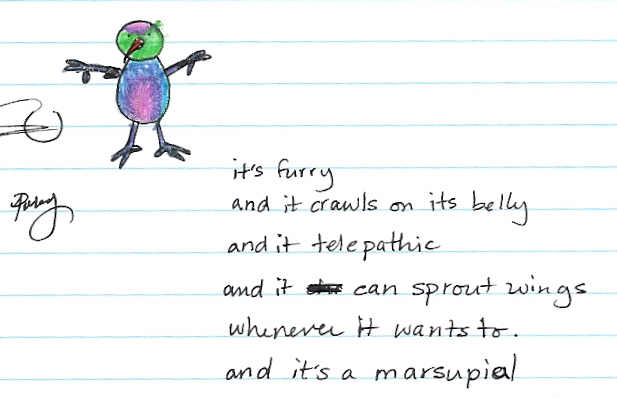 it's furry
and it crawls on its belly
and it telepathic
and it can sprout wings
whenever it wants to.
and it's a marsupial